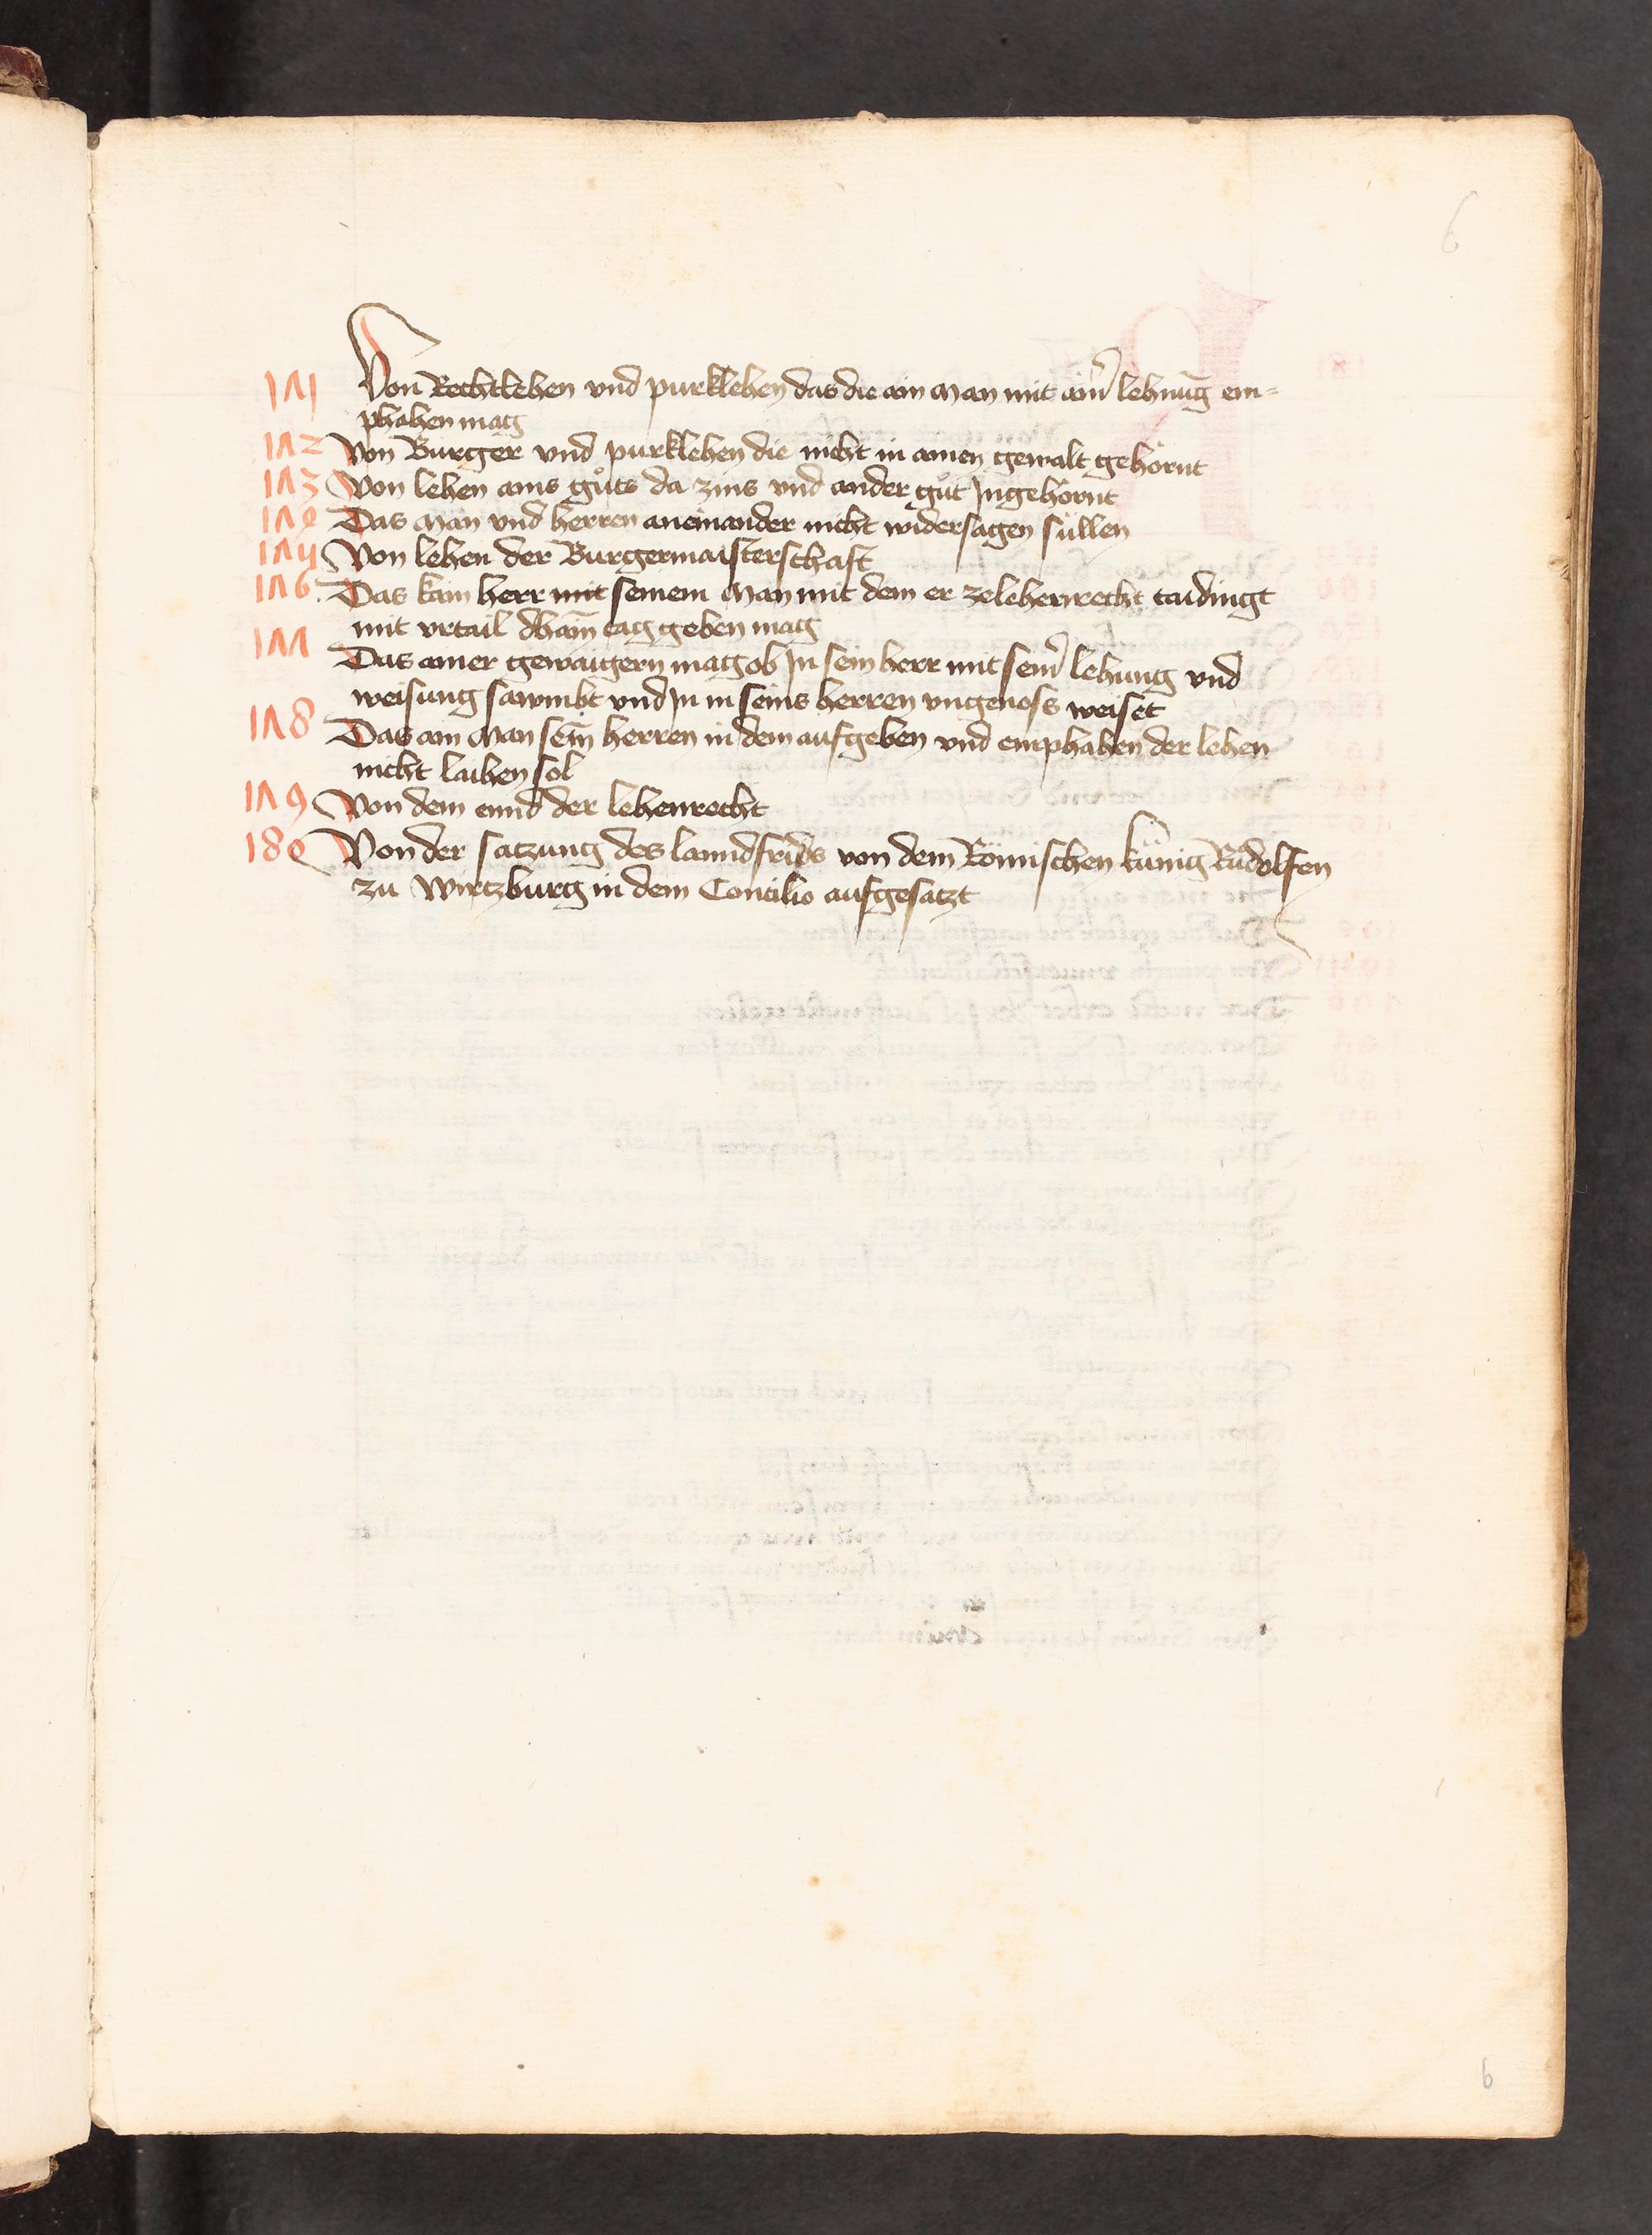 6
171 Von Rechtlehen vnd purklehen das die ain Man mit aim̄ lehnūg em-
phahen mag
172 Von Burger vnd purklehen die nicht in ainen gewalt gehörnt
173 Von lehen ains gůts da zins vnd ander gůt Jngehörnt
174 Das Man vnd herren aneinander nicht widersagen süllen
175 Von lehen der Burgermaisterschaft
176 Das kain herr mit seinem Man mit dem er zelehenrecht taidingt
mit vrtail dhain̄ tag geben mag
177 Das ainer gewaigern mag ob Jn sein herr mit sein̄ lehnung vnd
weisung sawmbt vnd Jn in seins herren vngenoss weiset
178 Das ain Man sein̄ herren in dem aufgeben vnd emphahen der lehen
nicht laihen sol
179 Von dem ennd der lehenrecht
180 Von der satzung des lanndfrids von dem Römischen künig Růdolfen
zu Wirtzburg in dem Concilio aufgesatzt
6